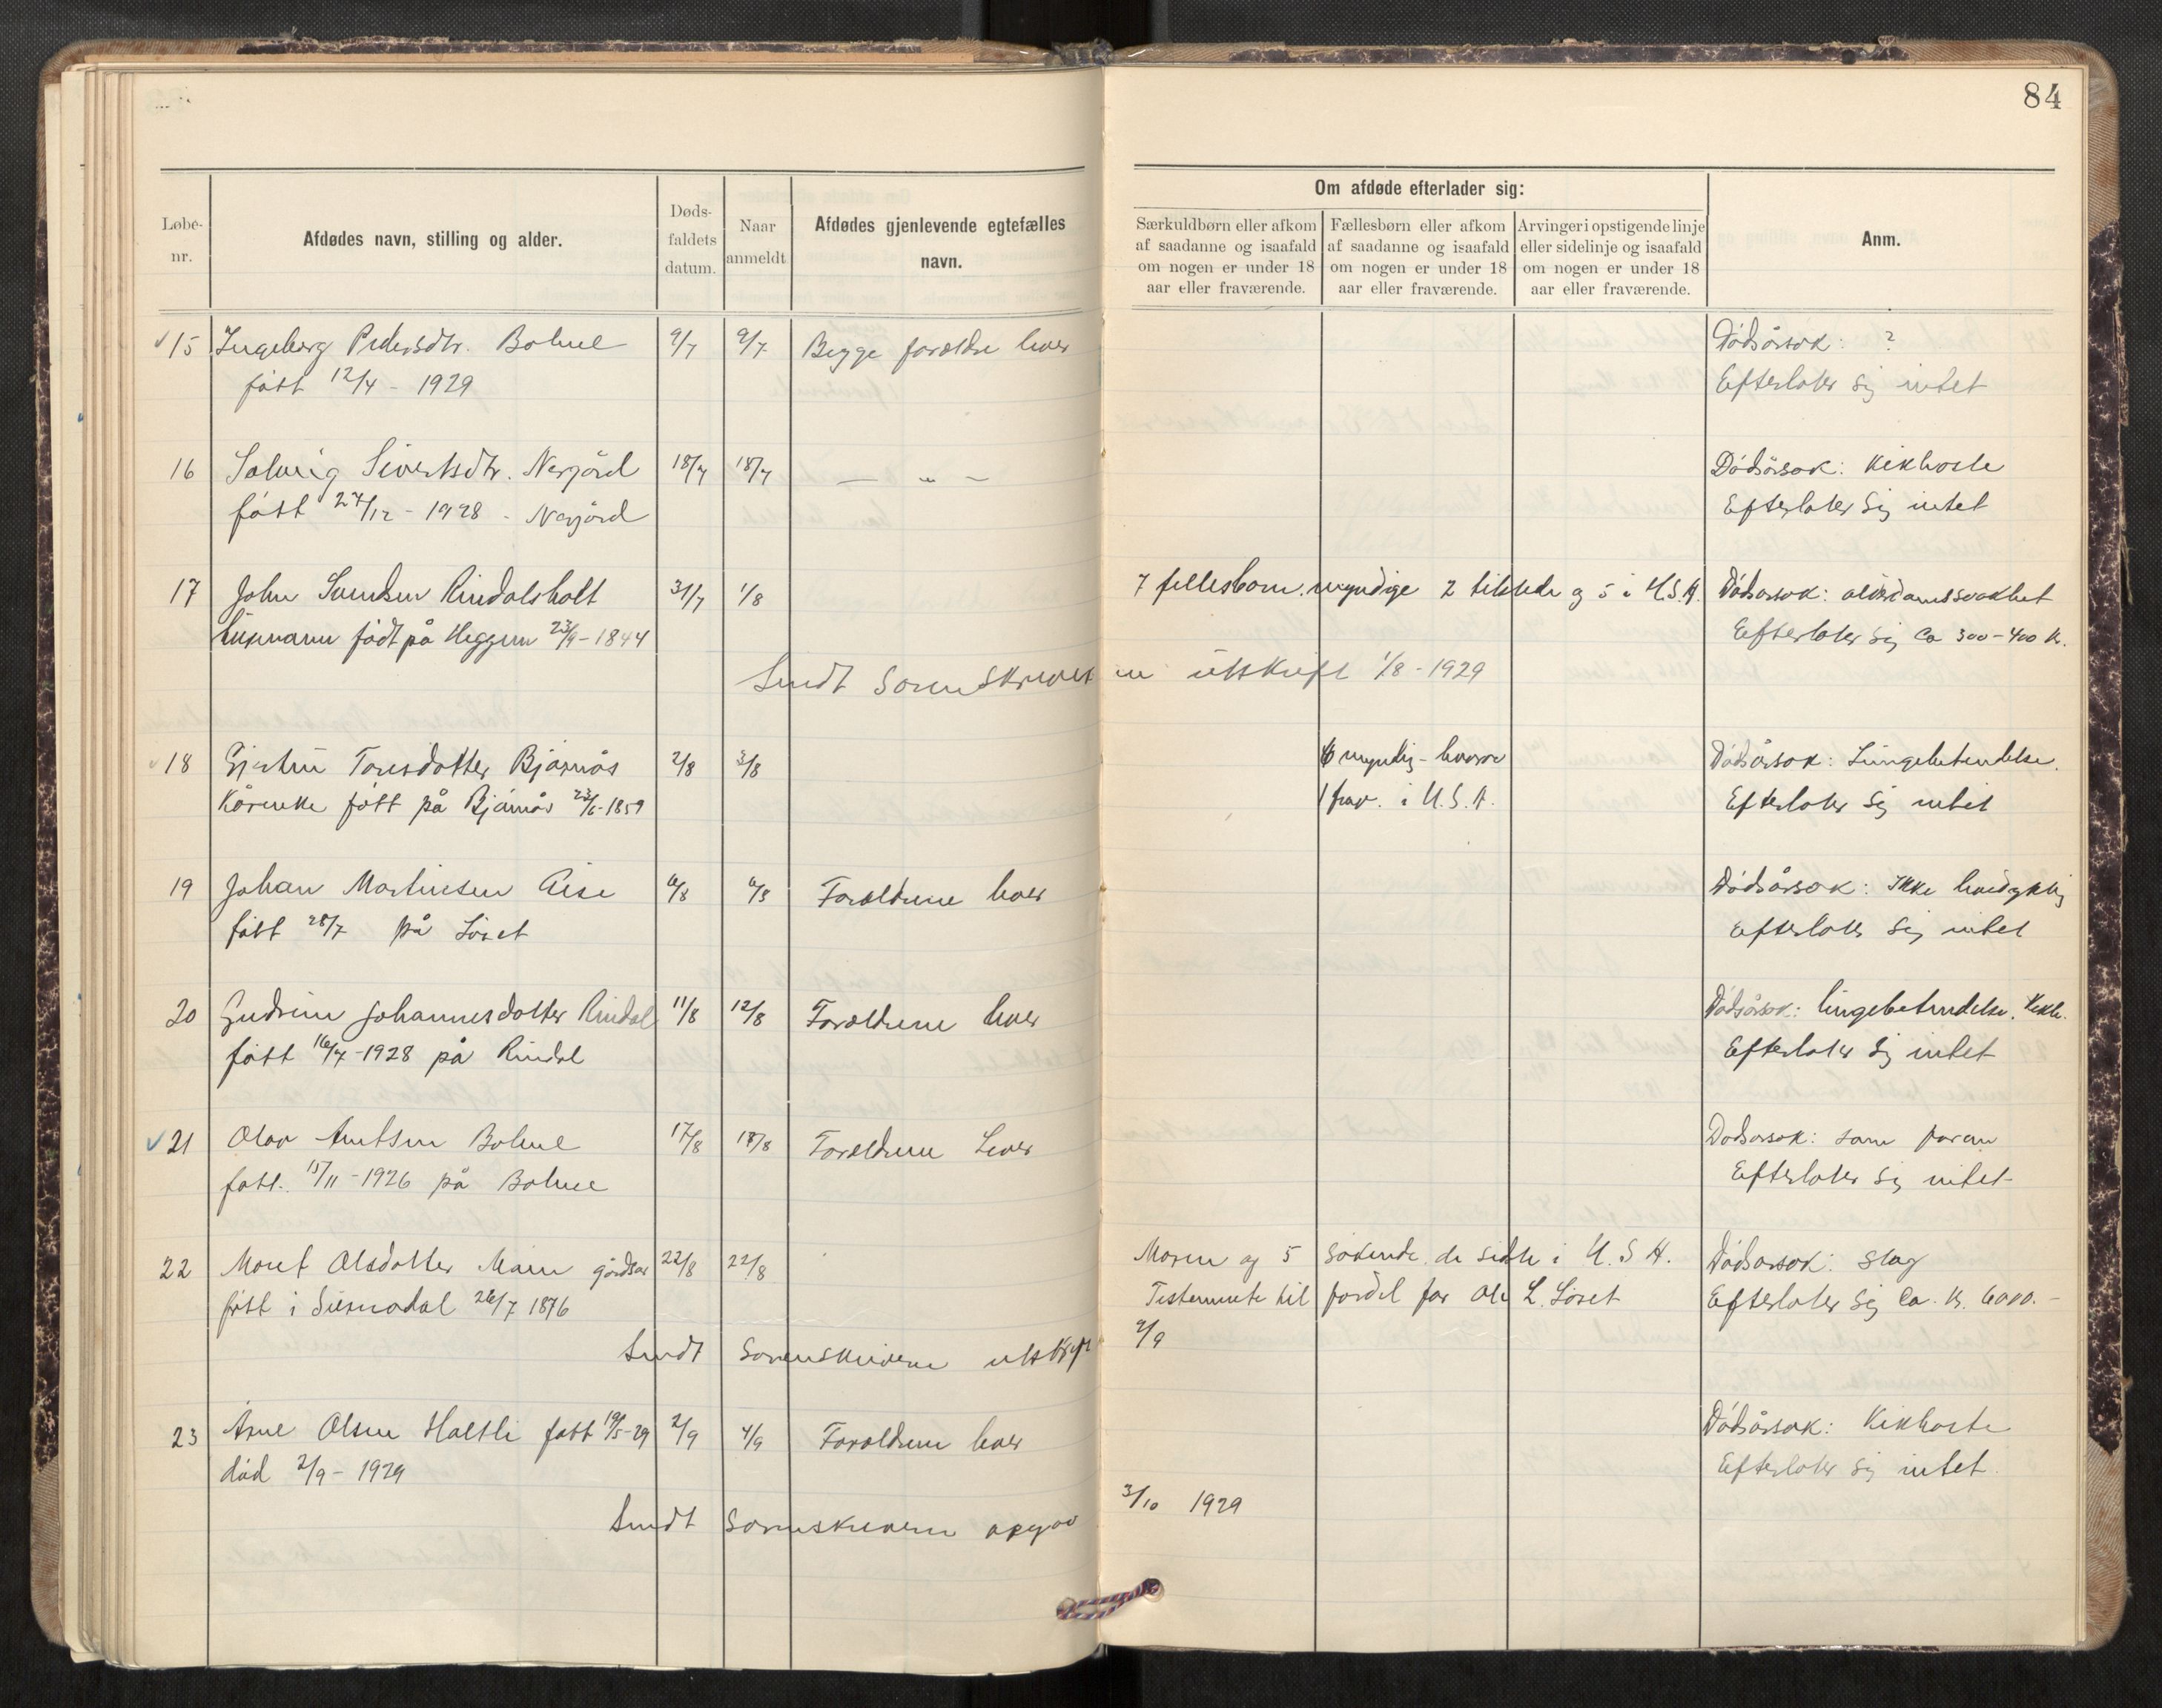 84
Løbe-nr.
Afdødes navn, stilling og alder.
Døds-faldets datum.
Naar anmeldt
Afdødes gjenlevende egtefælles navn.
Om afdøde efterlader sig:
Særkuldbørn eller afkom af saadanne og isaafald om nogen er under 18 aar eller fraværende.
Fællesbørn eller afkom af saadanne og isaafald om nogen er under 18 aar eller fraværende.
Arvinger i opstigende linje eller sidelinje og isaafald om nogen er under 18 aar eller fraværende.
Anm.
15 Ingeborg Pedersdtr. Bolme 9/7 9/7 Begge foreldre lever Dödsårsok: ?
fött 12/4 - 1929 Efterlater sig intet
16 Solveig Sivertsdtr. Nergård 18/7 18/7 — „ — Dödsårsok: Kikhoste
fött 27/12 - 1928 - Nergård Efterlater sig intet
17 John Rindalsholt 31/7 1/8 7 fellesborn. myndige 2 tilstede og 5 i U.S.A. Dödsorsok: alderdomssvakhet
födt på Heggem 23/9 - 1844 Efterlater sig ca 300-400 kr.
Sendt Sorenskriveren utskrift 1/8 - 1929
18 Toresdotter Bjørnås 2/8 3/8 6 myndig - hvorav Dödsårsok: Lungebetendelse.
Kårenke fött på Bjørnås 23/6-1859 1 frav. i U.S.A. Efterlater sig intet
19 Johan Martinsen 6/8 6/8 Foreldrene lever Dödsårsok: Ikke
fött 28/7 på Löset Efterlater sig intet
20 Gudrun Johannesdotter Rindal 11/8 12/8 Foreldrene lever Dödsårsok: lungebetendelse. Kikh.
fött 16/7 - 1928 på Rindal Efterlater sig intet
21 Olav Bolme 17/8 18/8 Foreldrene Lever Dodsorsok: som foran
fött. 15/11 - 1926 på Bolme Efterlater sig intet
22 Maret Olsdotter Moen 22/8 22/8 Moren og 5 söskende. de sidste i U.S.A. Dödsorsok: slag
fött i Surnadal 26/7 1876 Testamente til fordel for Ole L. Löset Efterlater sig Ca. kr. 6000.-
Sendt Sorenskriveren utskrift 9/9
23 Arne Olsen Holtli fött 19/5-29 2/9 4/9 Foreldrene lever Dödsårsok: Kikhoste
död 2/9 - 1929 Efterlater sig intet
Sendt Sorenskriveren opgav 3/10 1929